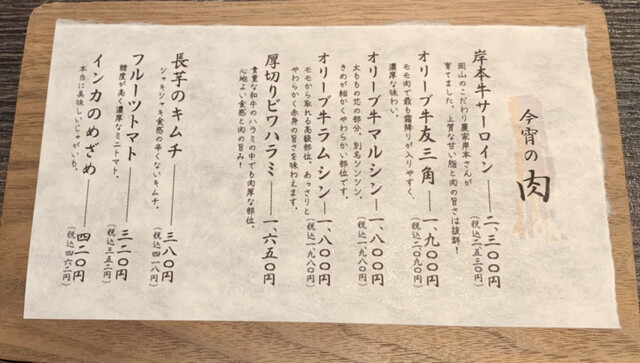 今宵の肉
岸本牛サーロイン 二、三〇〇円
(税込二、五三〇円)
岡山のこだわり農家岸本さんが
育てました。上質な甘い脂と肉の旨さは抜群！
オリーブ牛友三角 一、九〇〇円
(税込二、〇九〇円)
モモ肉で最も霜降りが入りやすく、
濃厚な味わい。
オリーブ牛マルシン 一、八〇〇円
(税込一、九八〇円)
太ももの芯の部分。別名シンシン。
きめが細かくやわらかい部位です。
オリーブ牛ラムシン 一、八〇〇円
(税込一、九八〇円)
モモから取れる高級部位。あっさりと
やわらかく赤身の旨さを味わえます。
厚切りビワハラミ 一、六五〇円
貴重な和牛のハラミの中でも肉厚な部位。
心地よい食感と肉の旨み！
長芋のキムチ 三八〇円
(税込四一八円)
シャキシャキ食感の辛くないキムチ。
フルーツトマト 三二〇円
(税込三五二円)
糖度が高く濃厚なミニトマト。
インカのめざめ 四二〇円
(税込四六二円)
本当に美味しいじゃがいも。